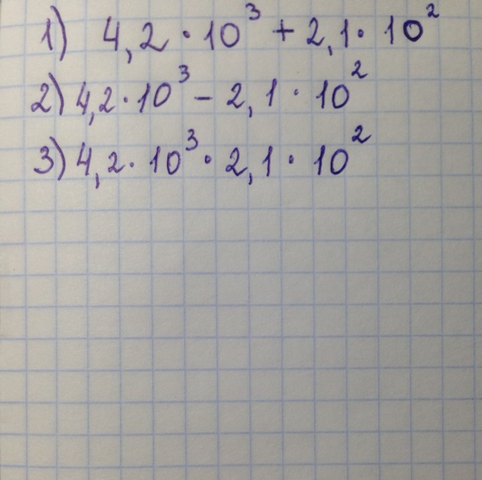 1) 4,2 · 10³ + 2,1 · 10²
2) 4,2 · 10³ – 2,1 · 10²
3) 4,2 · 10³ · 2,1 · 10²